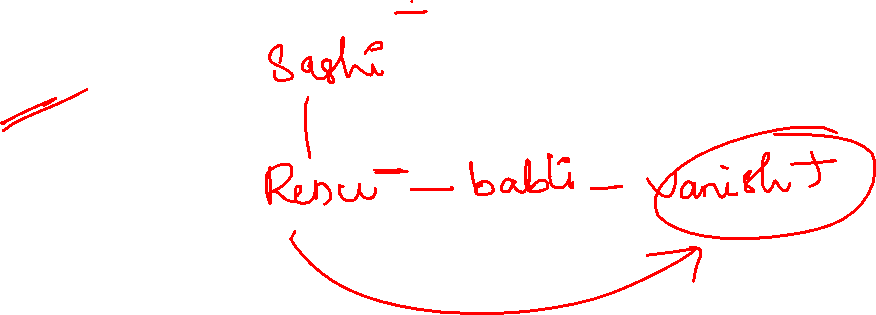 Sashi -
Renu - - babli - Vanish +